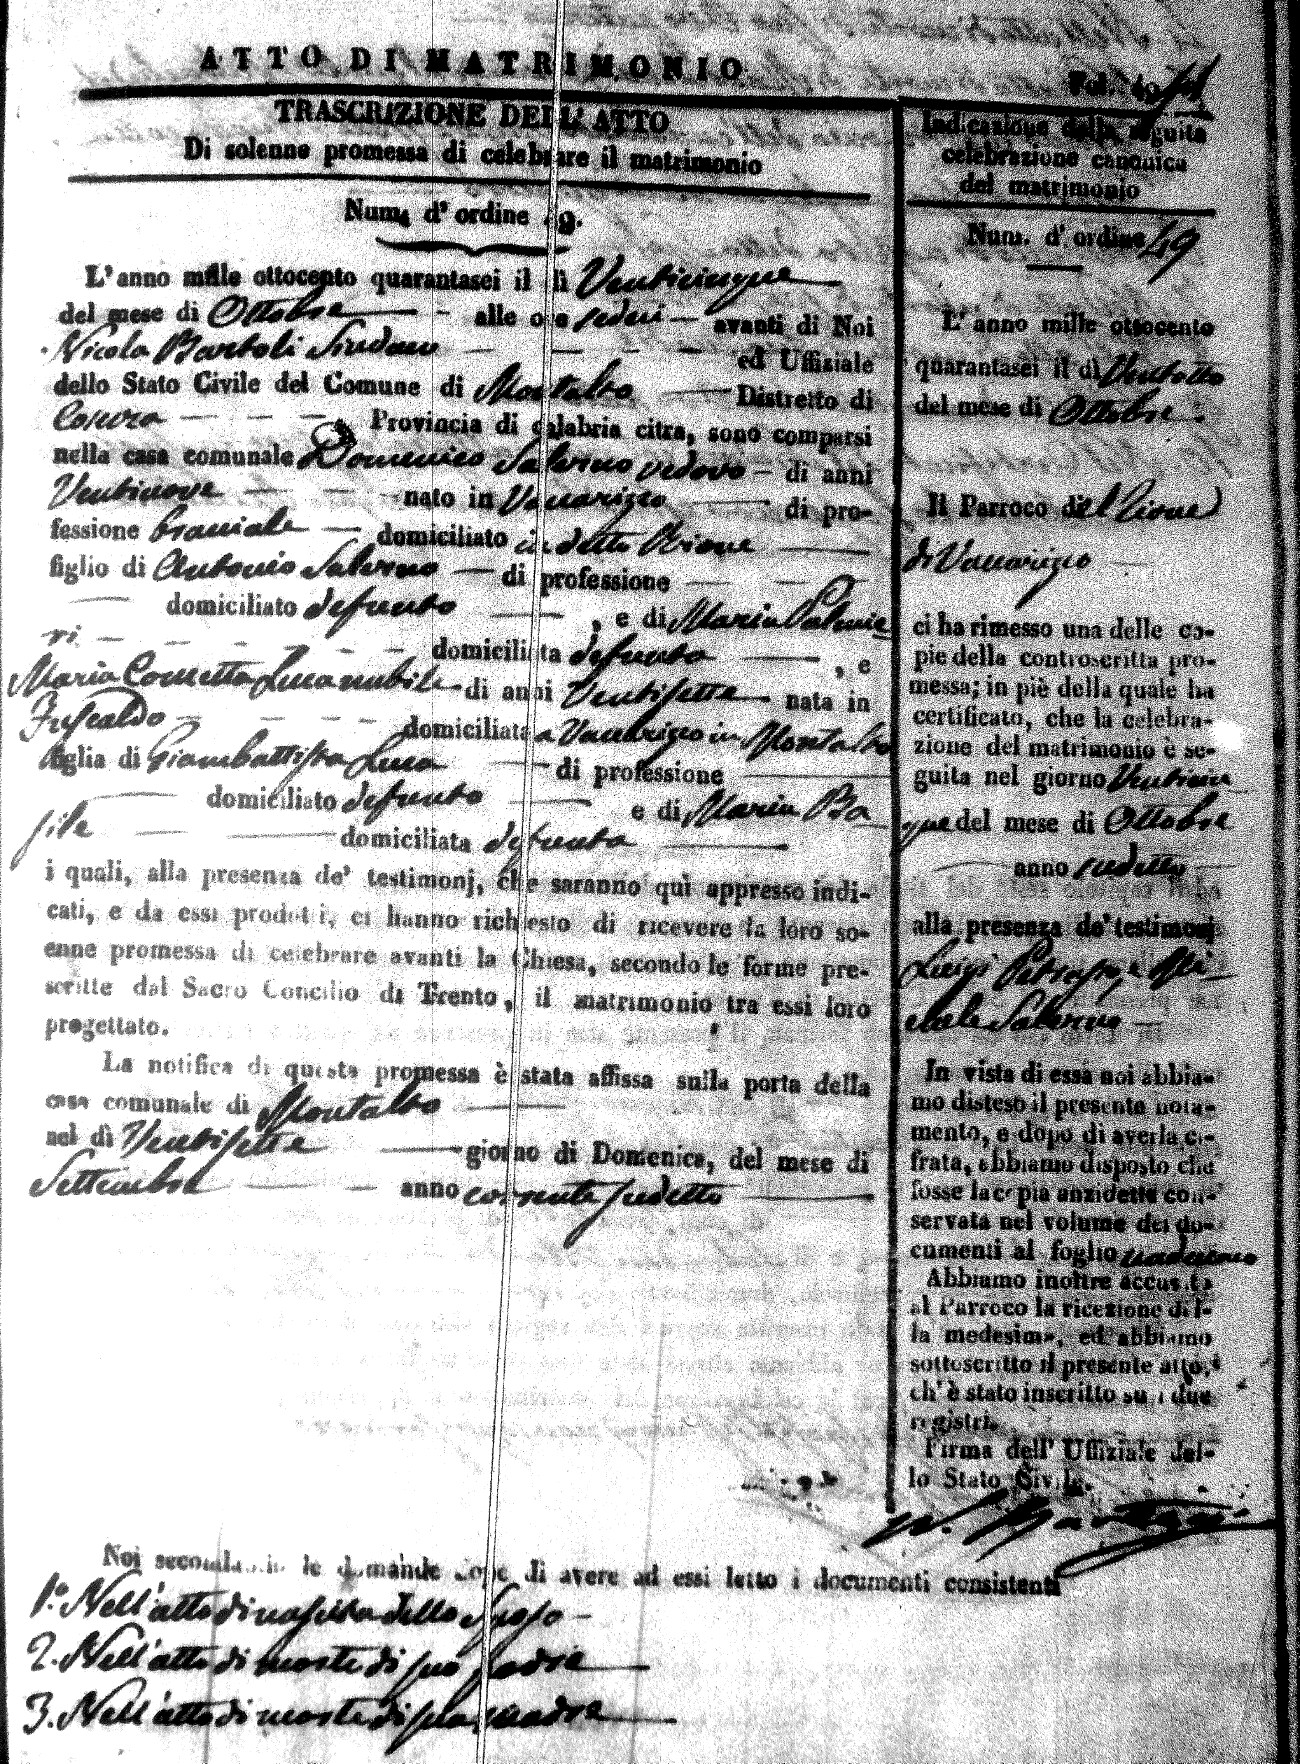 ATTO DI MATRIMONIO
Fol. 49
TRASCRIZIONE DELL' ATTO
Di solenne promessa di celebrare il matrimonio
Num. d' ordine 49.
L'anno mille ottocento quarantasei il dì Venticinque
del mese di Ottobre alle ore sedeci avanti di Noi
Nicola Bartoli Sindaco ed Uffiziale
dello Stato Civile del Comune di Montalto Distretto di
Cosenza Provincia di Calabria citra, sono comparsi
nella casa comunale Domenico Salerno vedovo di anni
Ventinove nato in Vaccarizzo di pro-
fessione braciale domiciliato in detto Rione
figlio di Antonio Salerno di professione
domiciliato defunto , e di Maria Palmie
ri domiciliata defunta , e
Maria Cometta Luca nubile di anni Ventisette nata in
Fuscaldo domiciliata a Vaccarizzo in Montalto
figlia di Giambattista Luca di professione
domiciliato defunto e di Maria Ba
sile domiciliata defunta
i quali, alla presenza de' testimonj, che saranno qui appresso indi-
cati, e da essi prodotti, ci hanno richiesto di ricevere la loro so-
enne promessa di celebrare avanti la Chiesa, secondo le forme pre-
scritte dal Sacro Concilio di Trento, il matrimonio tra essi loro
progettato.
La notifica di questa promessa è stata affissa sulla porta della
casa comunale di Montalto
nel dì Ventisette giorno di Domenica, del mese di
Settembre anno corrente sudetto
Indicazione della seguita
celebrazione canonica
del matrimonio
Num. d' ordine 49
L' anno mille ottocento
quarantasei il dì Ventotto
del mese di Ottobre
Il Parroco del Rione
di Vaccarizzo
ci ha rimesso una delle co-
pie della controscritta pro-
messa; in piè della quale ha
certificato, che la celebra-
zione del matrimonio è se-
guita nel giorno Venticin
que del mese di Ottobre
anno sudetto
alla presenza de' testimonj
Luigi
Salerno
In vista di essa noi abbia-
mo disteso il presente nota-
mento, e dopo di averla ci-
frata, abbiamo disposto che
fosse la copia anzidetta con-
servata nel volume dei do-
cumenti al foglio
Abbiamo inoltre accusata
al Parroco la ricezione del-
la medesima, ed abbiamo
sottoscritto il presente atto,
ch' è stato inscritto su i due
registri.
Firma dell' Uffiziale del-
lo Stato Civile.
N. Bartoli
Noi secondando le domande dopo di avere ad essi letto i documenti consistenti
1.° Nell'atto di nascita dello Sposo
2. Nell'atto di morte di suo padre
3. Nell'atto di morte di sua madre